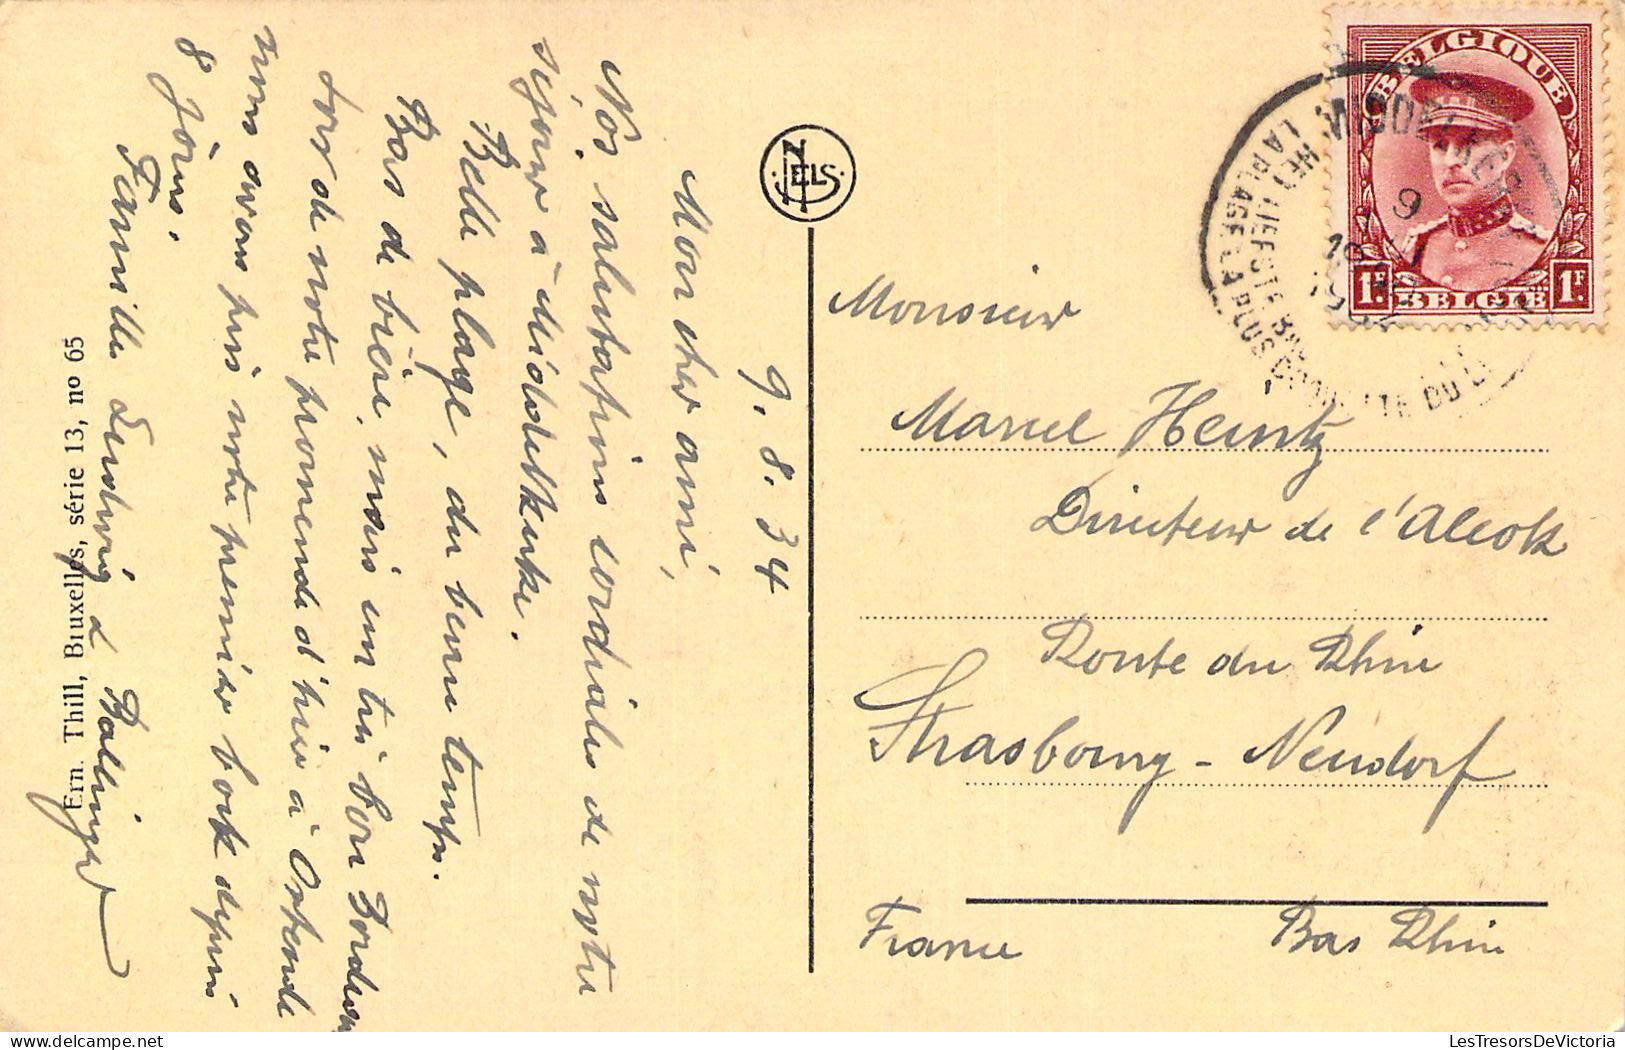 9. 8. 34
Mon cher ami,
Nos salutations cordiales de notre
séjour à Middelkerke.
Belle plage, du beau temps.
Pas de bière, mais un très bon Bordeaux
Lors de notre promenade d'hier à Ostende
nous avons pris notre premier bock depuis
8 jours.
Famille Ludwig & Ballinger
Ern. Thill, Bruxelles, série 13, no 65
NELS
BELGIQUE
1F
BELGIË
1F
MIDDELKERKE
9
LA PLAGE LA PLUS
Monsieur
Marcel Heintz
Directeur de l'Alcok
Route du Rhin
Strasbourg - Neudorf
France
Bas Rhin
LesTresorsDeVictoria